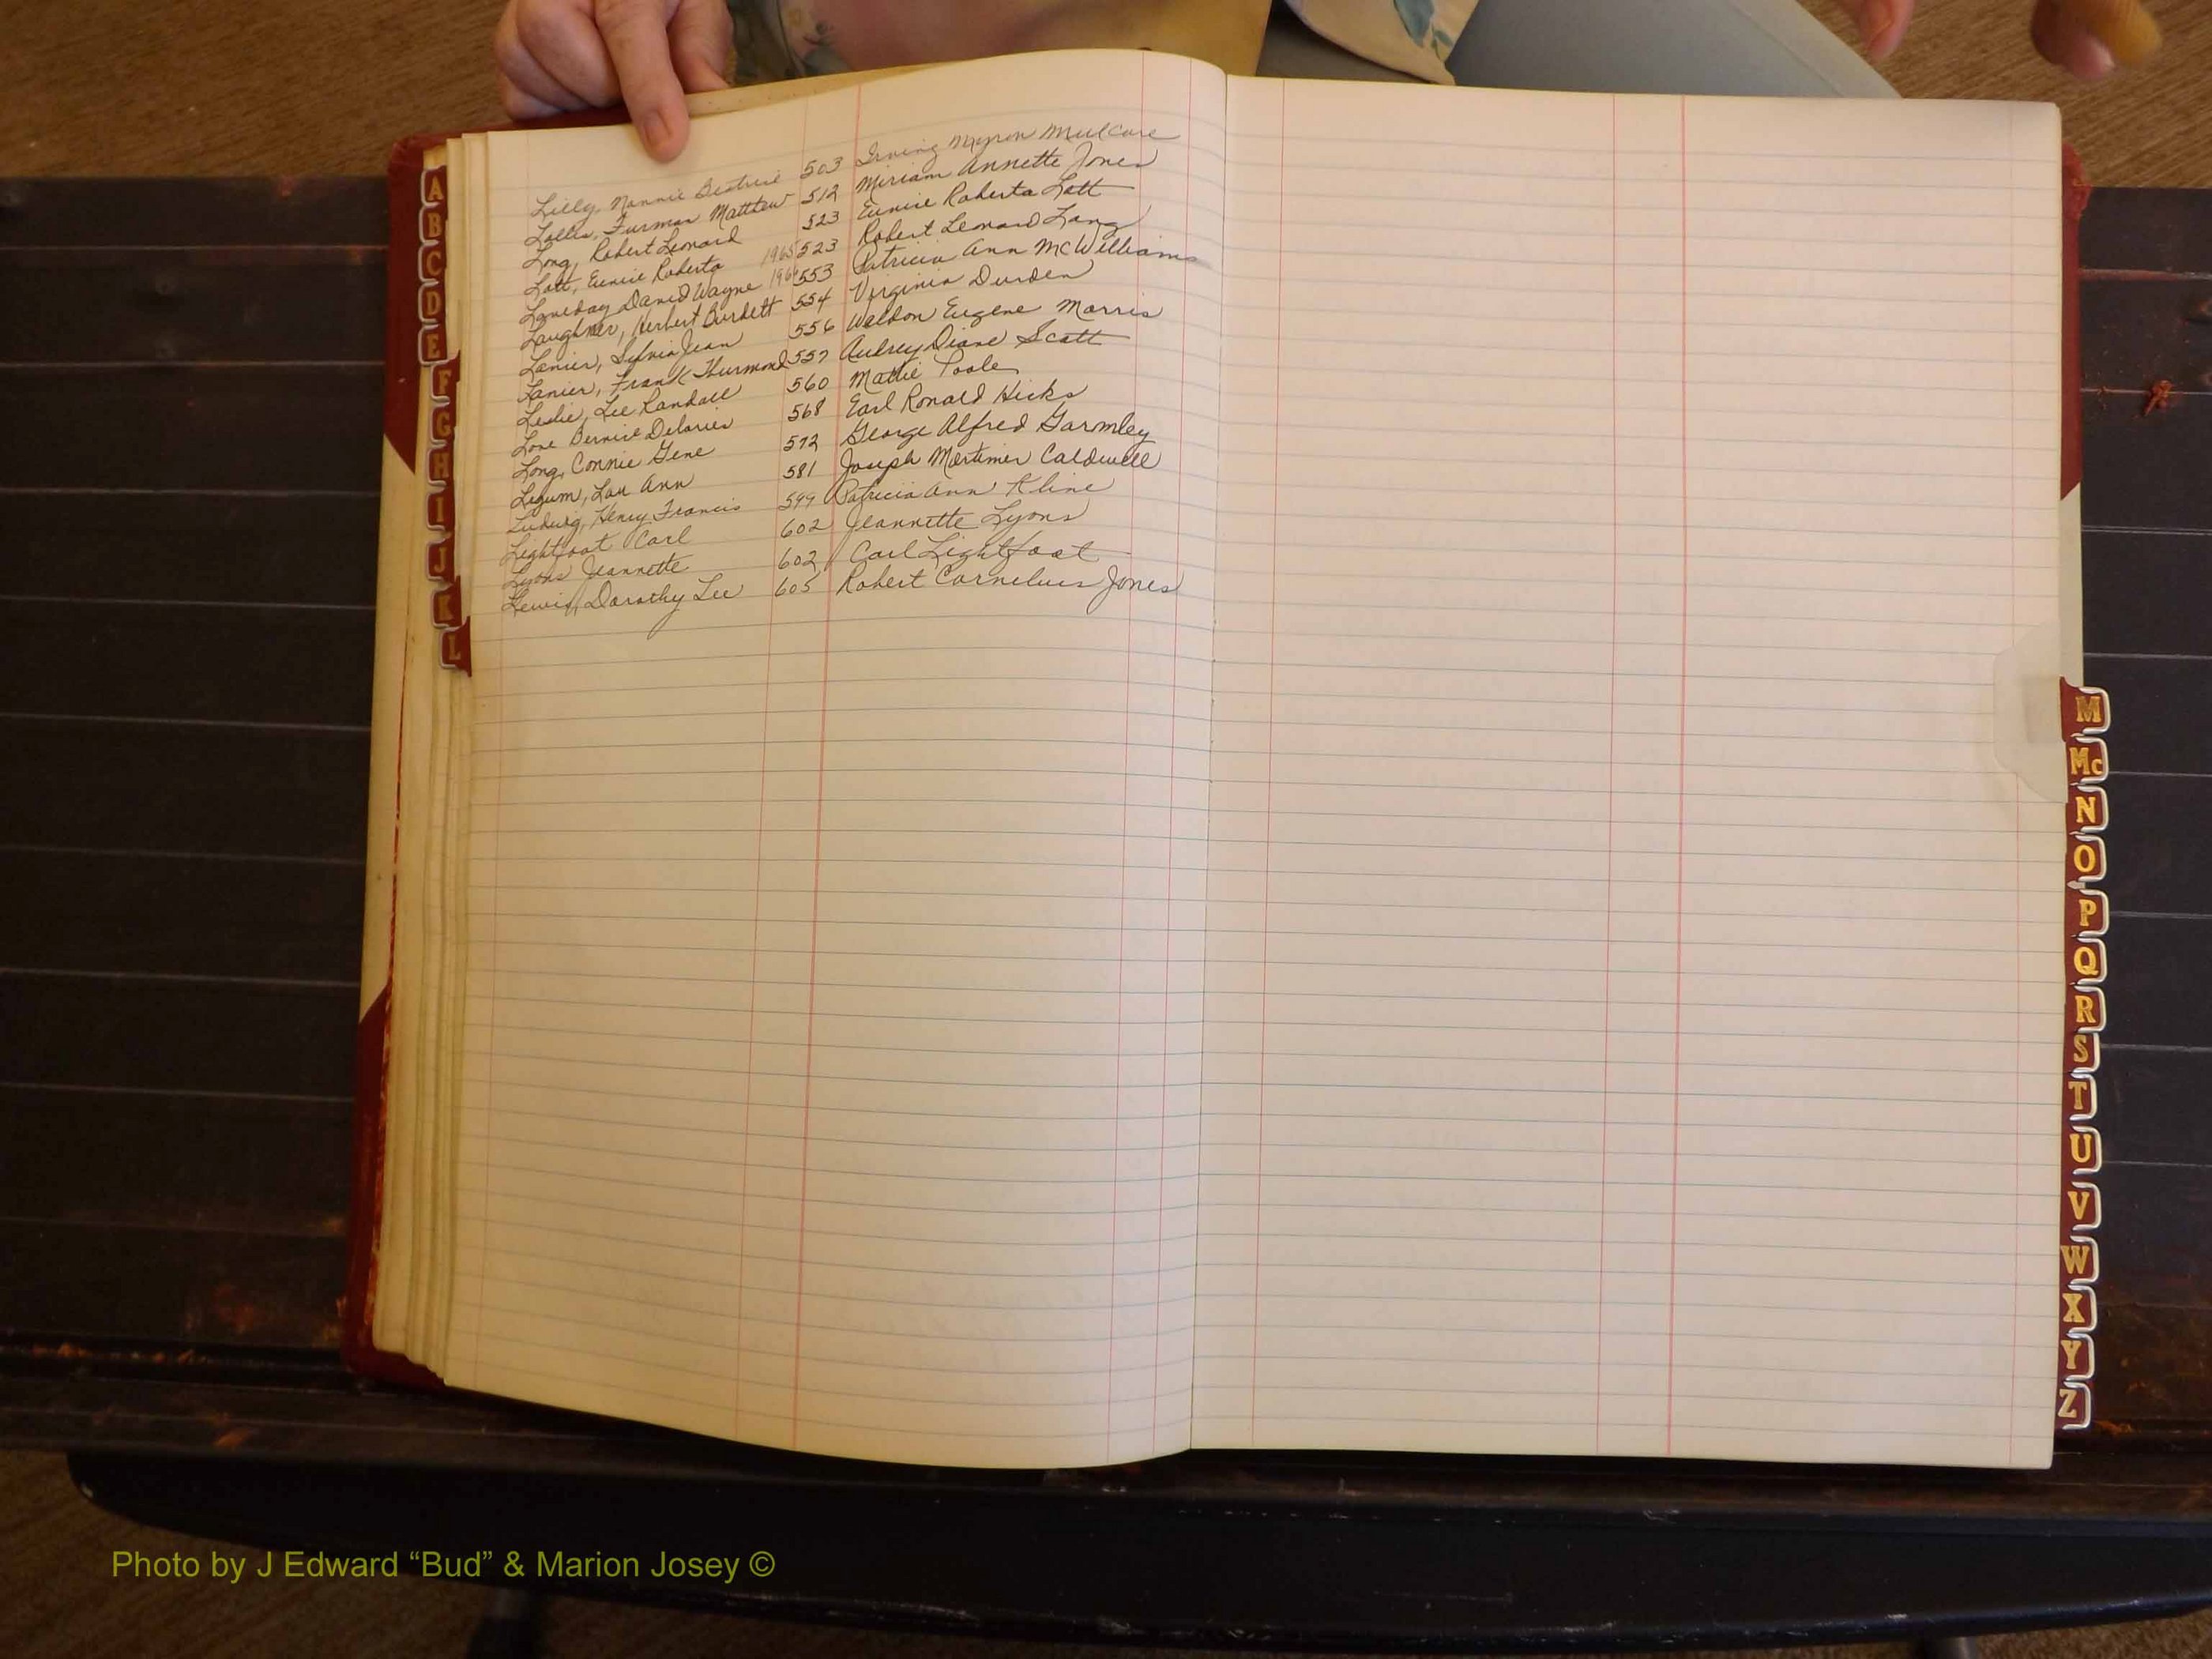 Lilly, Nannie Beatrice 503 Irving Myron Mulcare
Lollis, Furman Matthew 512 Miriam Annette Jones
Long, Robert Leonard 523 Eunice Roberta Lott
Lott, Eunice Roberta 1965 523 Robert Leonard Long
Loveday David Wayne 1966 553 Patricia Ann McWilliams
Laughner, Herbert Burdett 554 Virginia Durden
Lanier, Sylvia Jean 556 Waldon Eugene Morris
Lanier, Frank Thurmond 557 Aubrey Diane Scott
Leslie, Lee Randall 560 Mattie Poole
Love Bernice Delories 568 Earl Ronald Hicks
Long, Connie Gene 572 George Alfred Garmley
Legum, Lou Ann 581 Joseph Mortimer Caldwell
Ludwig, Henry Francis 599 Patricia Ann Kline
Lightfoot Carl 602 Jeannette Lyons
Lyons Jeannette 602 Carl Lightfoot
Lewis, Dorothy Lee 605 Robert Cornelius Jones
A
B
C
D
E
F
G
H
I
J
K
L
M
Mc
N
O
P
Q
R
S
T
U
V
W
X
Y
Z
Photo by J Edward “Bud” & Marion Josey ©